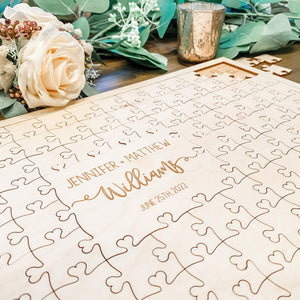 JENNIFER + MATTHEW
Williams
JUNE 25TH, 2022